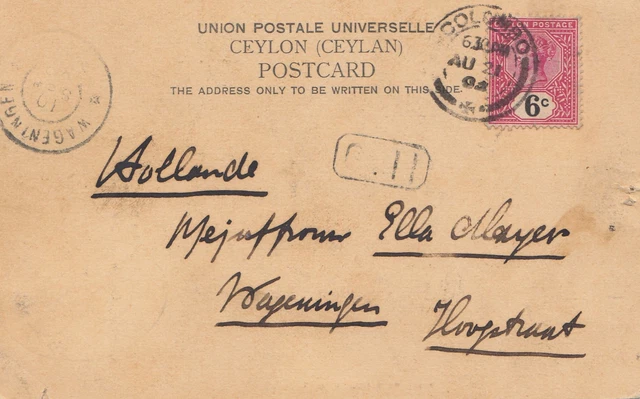 UNION POSTALE UNIVERSELLE
CEYLON (CEYLAN)
POSTCARD
THE ADDRESS ONLY TO BE WRITTEN ON THIS SIDE.
COLOMBO
6.30 PM
AU 21
POSTAGE
6c
WAGENINGEN
Hollande
Mejuffrouw Ella Mayer
Wageningen Hoogstraat